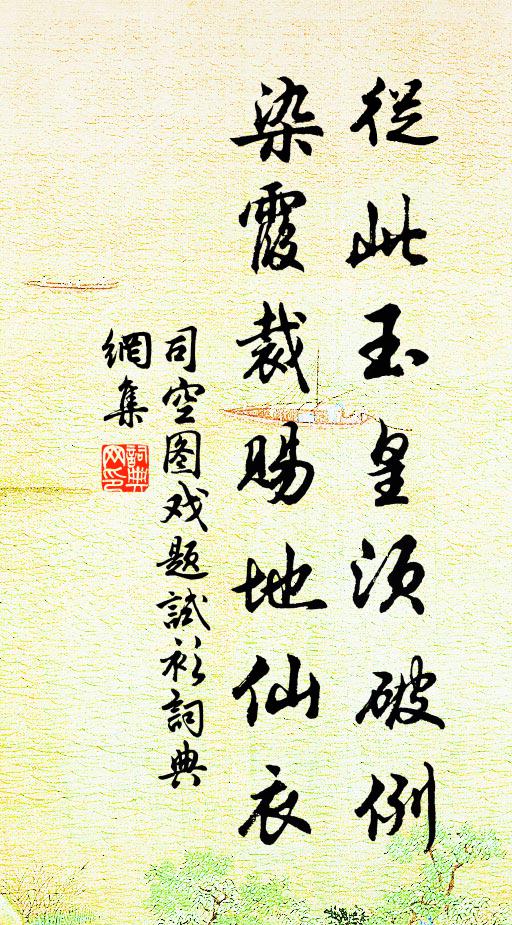 從此玉皇須破例
染霞裁賜地仙衣
司空图戏题試衫詞典
網集
詞典
网印